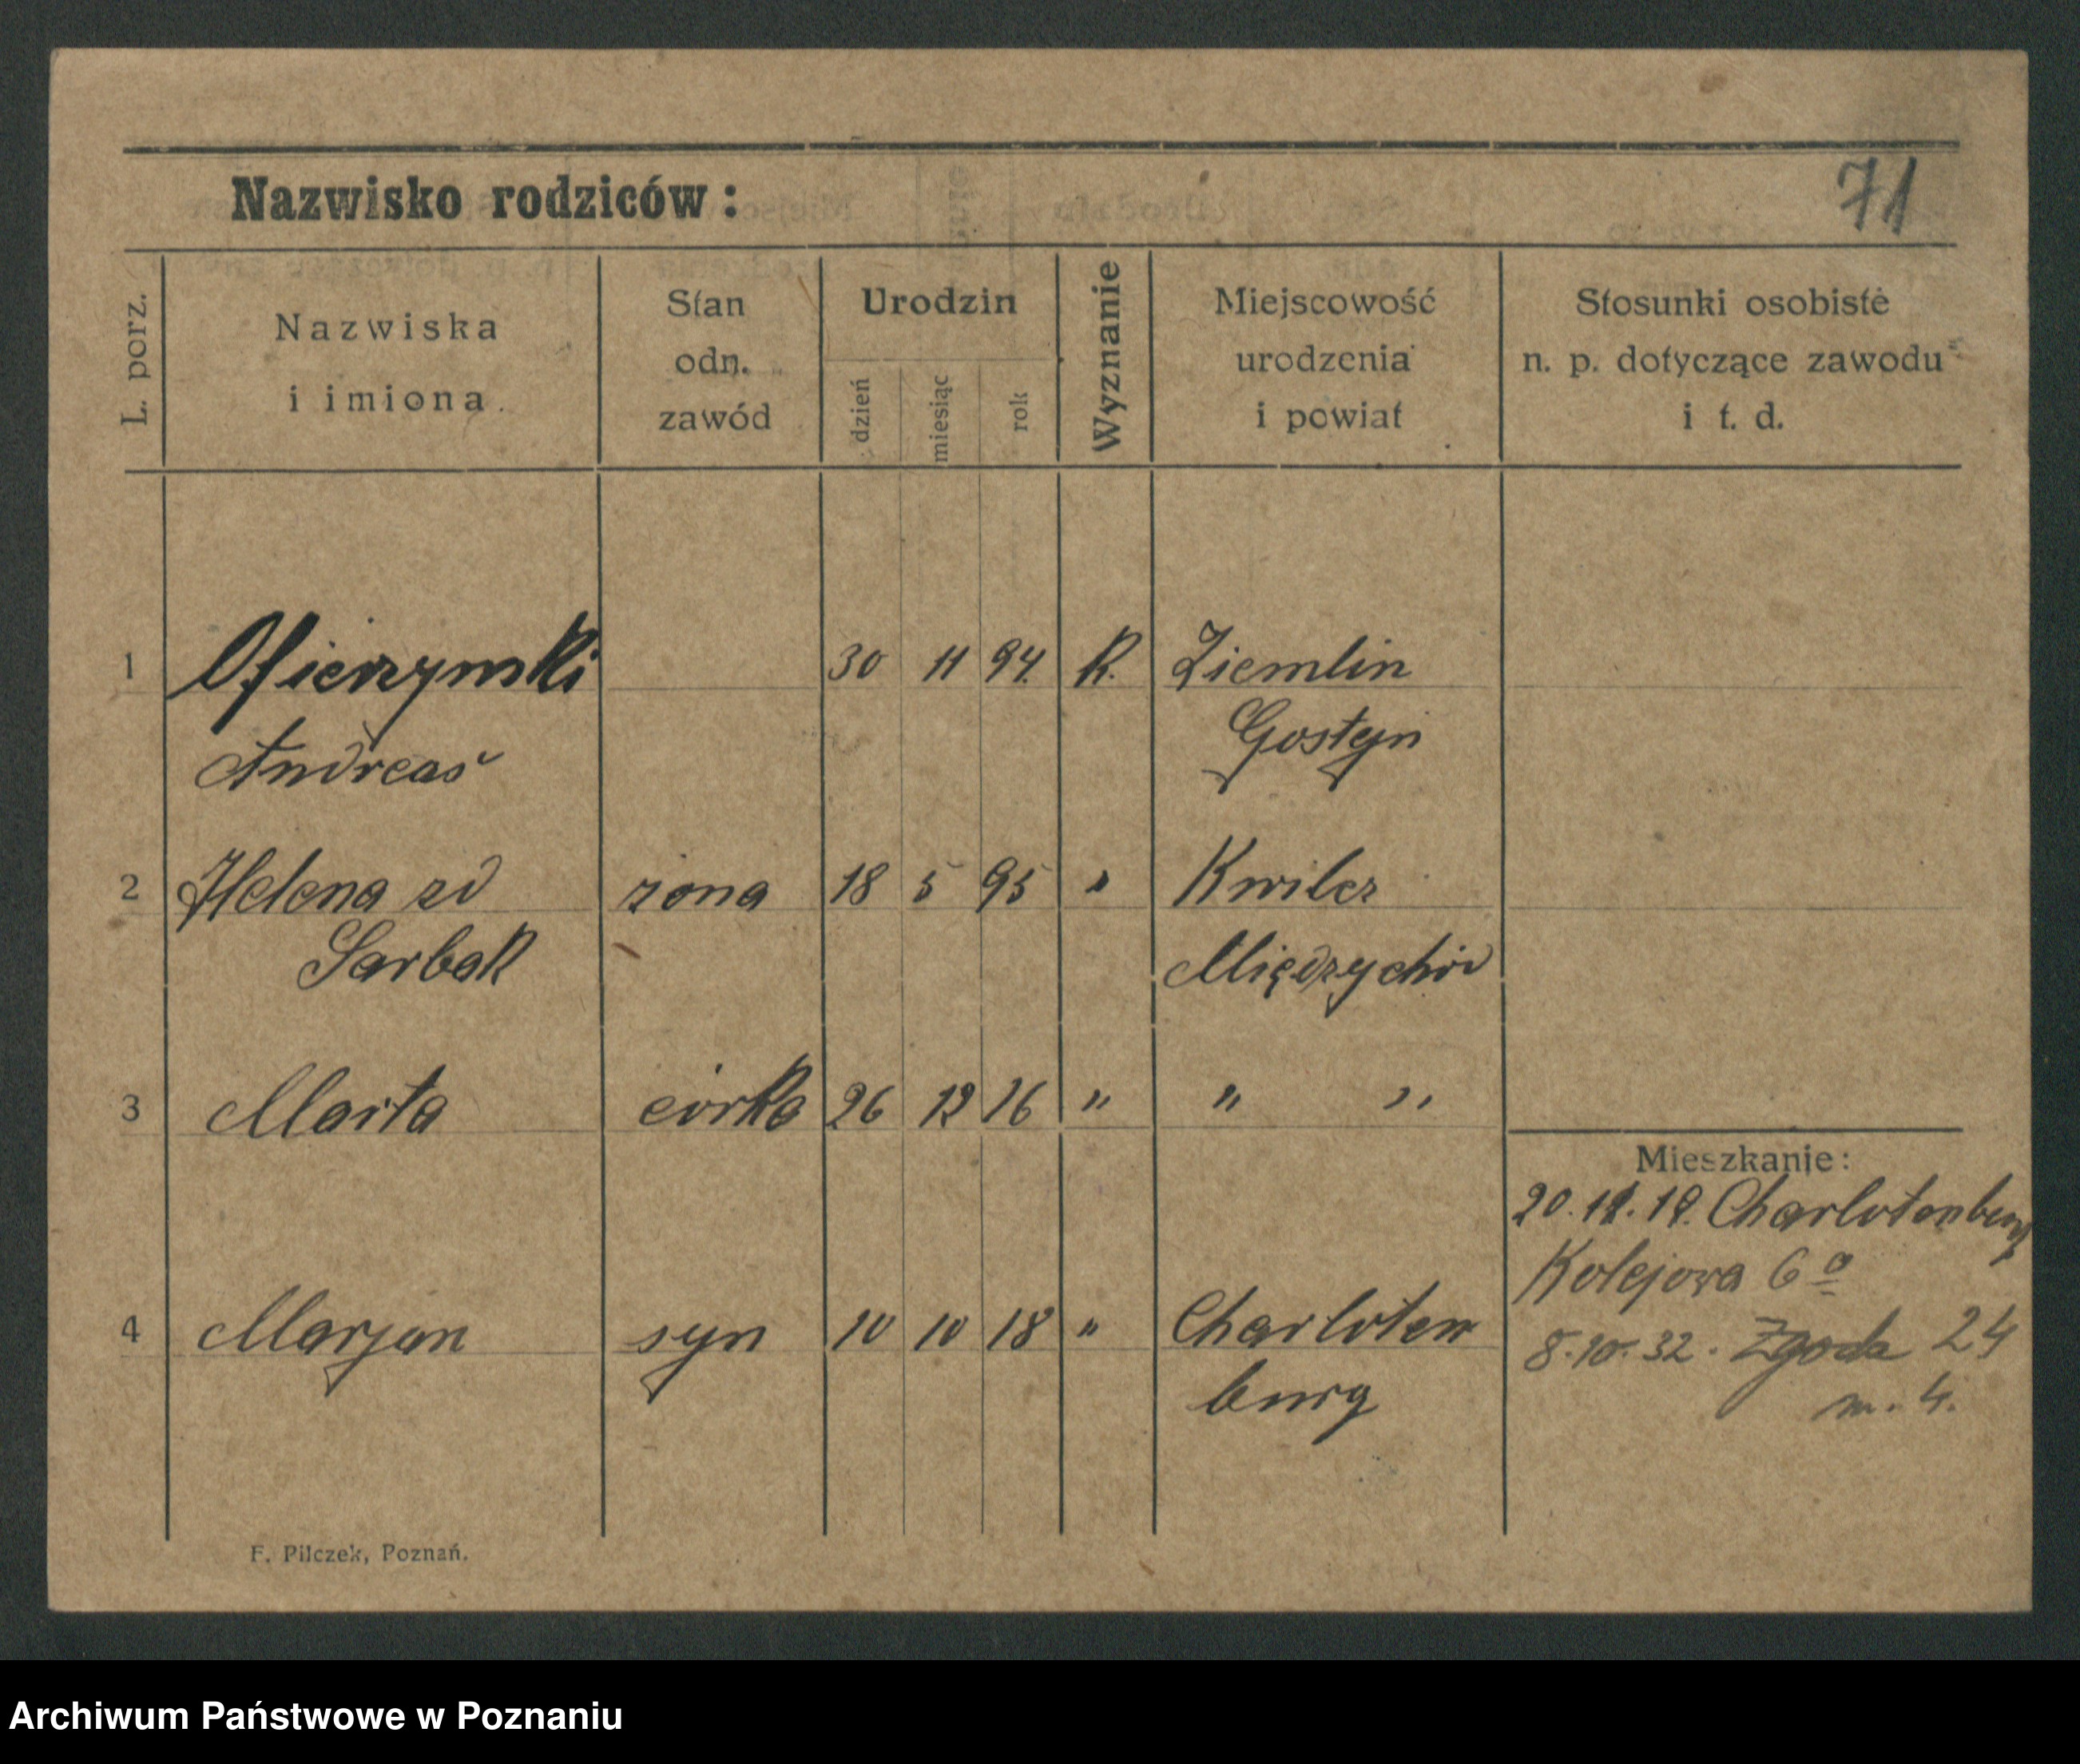 71
Nazwisko rodziców:
L. porz.
Nazwiska
i imiona.
Stan
odn.
zawód
Urodzin
dzień
miesiąc
rok
Wyznanie
Miejscowość
urodzenia
i powiat
Stosunki osobiste
n. p. dotyczące zawodu
i t. d.
1 Ofierzynski 30 11 94. R. Ziemlin
Andreas Gostyń
2 Helena zd żona 18 5 95 " Kwilcz
Sarbak Międzychód
3 Marta córka 26 12 16 " " "
Mieszkanie:
20. 12. 19. Charlotenburg
Kolejowa 6a
4 Marjan syn 10 10 18 " Charloten
burg
8.10.32. Zgoda 24
m. 4.
F. Pilczek, Poznań.
Archiwum Państwowe w Poznaniu